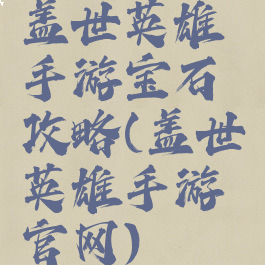 盖世英雄
手游宝石
攻略(盖世
英雄手游
官网)